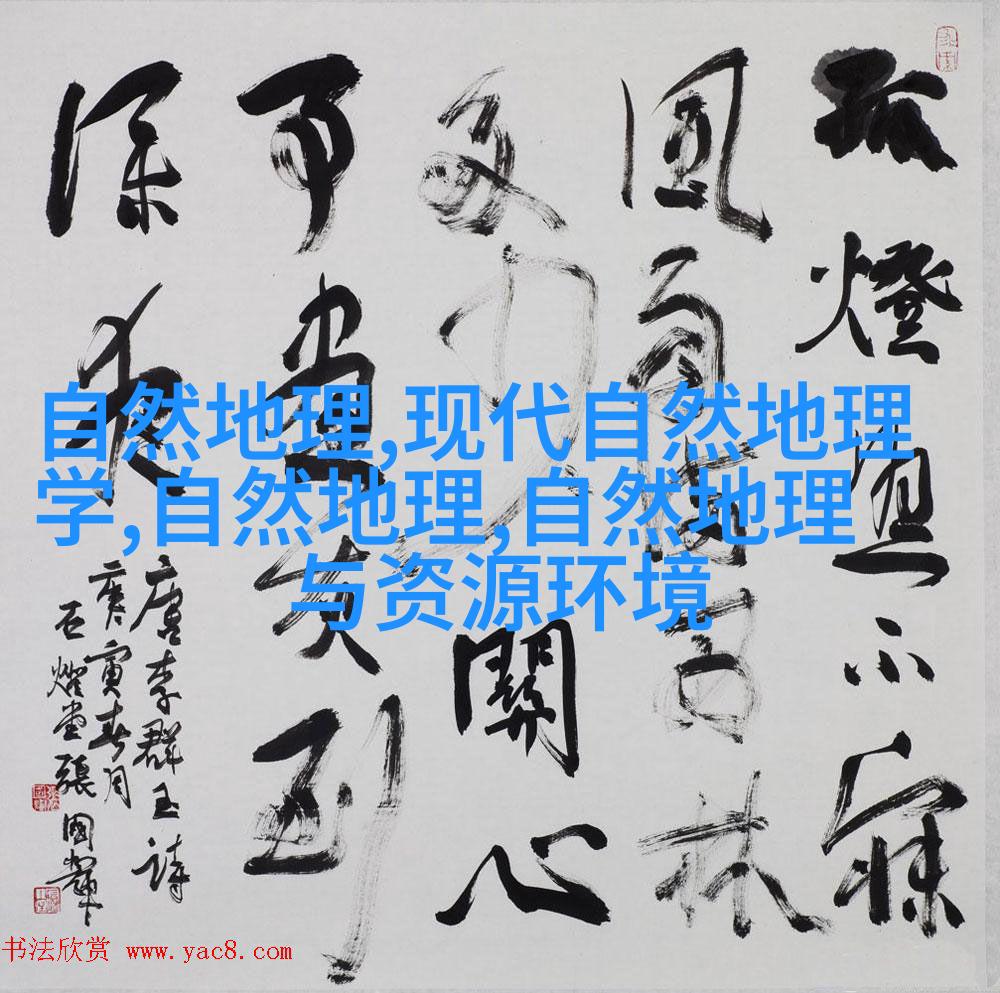 孤燈照不寐
風雨滿西林
多少關心
事書灰到
深夜
唐李群玉詩
庚寅春月
堂張國
自然地理,现代自然地理
学,自然地理,自然地理
与资源环境
书法欣赏 www.yac8.com